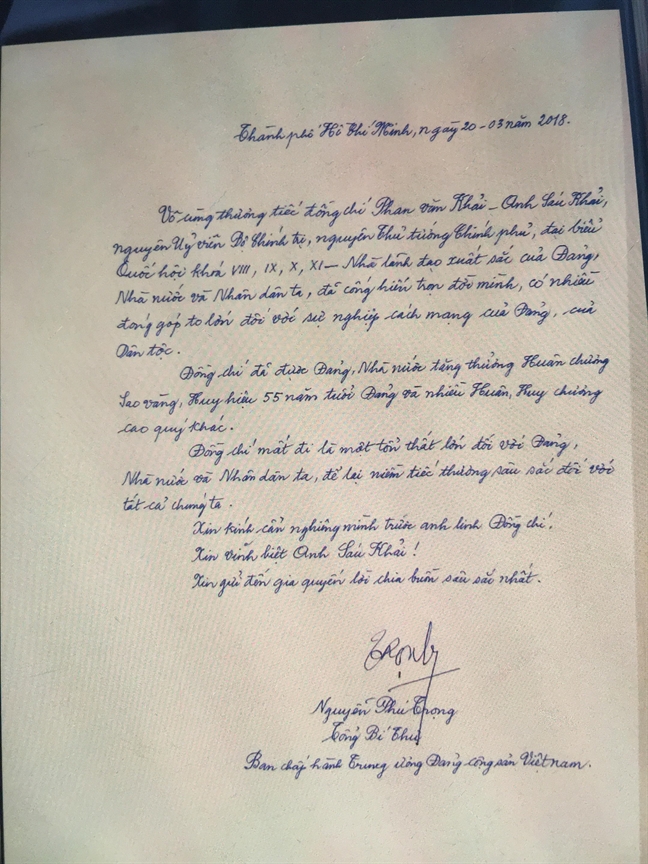 Thành phố Hồ Chí Minh, ngày 20-03 năm 2018.
Vô cùng thương tiếc đồng chí Phan Văn Khải - Anh Sáu Khải,
nguyên Uỷ viên Bộ Chính trị, nguyên Thủ tướng Chính phủ, đại biểu
Quốc hội khoá VIII, IX, X, XI - Nhà lãnh đạo xuất sắc của Đảng,
Nhà nước và Nhân dân ta, đã cống hiến trọn đời mình, có nhiều
đóng góp to lớn đối với sự nghiệp cách mạng của Đảng, của
Dân tộc.
Đồng chí đã được Đảng, Nhà nước tặng thưởng Huân chương
Sao vàng, Huy hiệu 55 năm tuổi Đảng và nhiều Huân, Huy chương
cao quý khác.
Đồng chí mất đi là một tổn thất lớn đối với Đảng,
Nhà nước và Nhân dân ta, để lại niềm tiếc thương sâu sắc đối với
tất cả chúng ta.
Xin kính cẩn nghiêng mình trước anh linh Đồng chí.
Xin vĩnh biệt Anh Sáu Khải!
Xin gửi đến gia quyến lời chia buồn sâu sắc nhất.
Trọng
Nguyễn Phú Trọng
Tổng Bí Thư
Ban chấp hành Trung ương Đảng cộng sản Việt nam.